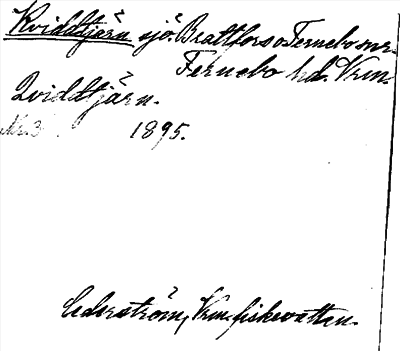 Kviddtjärn sjö. Brattfors o. Fernebo snr.
Fernebo hd. Vrm.
Qviddtjärn.
Nr. 3
1895.
Cederström, Vrm. fiskevatten.